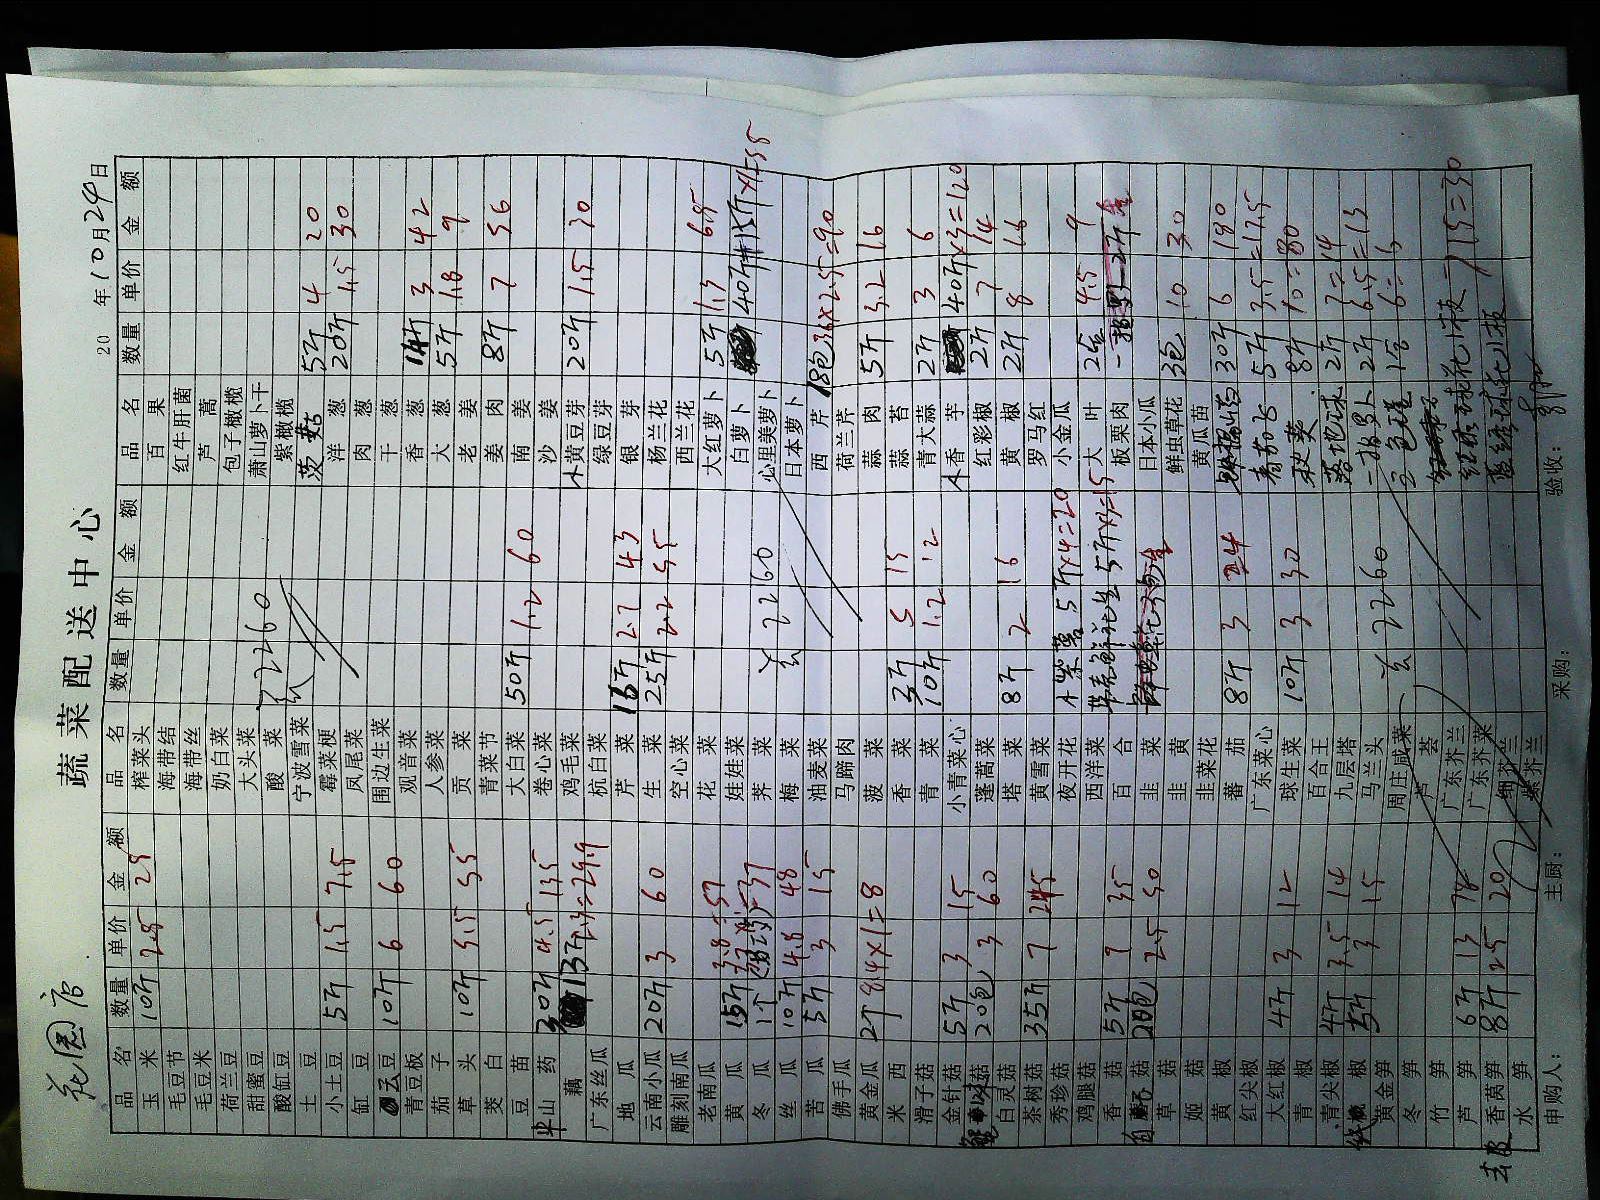 花园店
蔬菜配送中心
20 年10月24日
品名 数量 单价 金额 品名 数量 单价 金额 品名 数量 单价 金额
玉米 10斤 2.5 25 榨菜头 百果
毛豆节 海带结 红牛肝菌
毛豆米 海带丝 芦蒿
荷兰豆 奶白菜 包子橄榄
甜蜜豆 大头菜 萧山萝卜干
酸缸豆 酸菜 紫橄榄
土豆 宁波雪菜 茨菇 5斤 4 20
小土豆 5斤 1.5 7.5 霉菜梗 洋葱 20斤 1.5 30
缸豆 凤尾菜 肉葱
豆 10斤 6 60 围边生菜 干葱
青豆板 观音菜 香葱 14斤 3 42
茄子 人参菜 大葱 5斤 1.8 9
草头 10斤 5.5 55 贡菜 老姜
茭白 青菜节 肉姜 8斤 7 56
豆苗 大白菜 50斤 1.2 60 南姜
山药 30斤 4.5 135 卷心菜 沙姜
藕 13斤 2.3=29.9 鸡毛菜 黄豆芽 20斤 1.5 30
广东丝瓜 杭白菜 绿豆芽
地瓜 芹菜 16斤 2.7 43 银芽
云南小瓜 20斤 3 60 生菜 25斤 2.2 55 杨兰花
雕刻南瓜 空心菜 西兰花
老南瓜 花菜 大红萝卜 5斤 1.3 6.5
黄瓜 15斤 3.8=57 娃娃菜 白萝卜
冬瓜 1个 =37 荠菜 共2260 心里美萝卜
丝瓜 10斤 4.8 48 梅菜 日本萝卜
苦瓜 5斤 3 15 油麦菜 西芹 18包36×2.5=90
佛手瓜 马蹄肉 荷兰芹
黄金瓜 2个 8 4×1=8 菠菜 蒜肉 5斤 3.2 16
米西 香菜 3斤 5 15 蒜苔
滑子菇 青菜 10斤 1.2 12 青大蒜 2斤 3 6
金针菇 5斤 3 15 小青菜心 香芋 40斤×3=120
菇 20包 3 60 蓬蒿菜 红彩椒 2斤 7 14
白灵菇 塔菜 8斤 2 16 黄椒 2斤 8 16
茶树菇 35斤 7 245 黄雪菜 罗马红
秀珍菇 夜开花 木紫薯 5斤×4=20 小金瓜
鸡腿菇 西洋菜 带壳鲜花生 5斤×3=15 大叶 2盒 4.5 9
香菇 5斤 7 35 百合 板栗肉
菇 20包 2.5 50 韭菜 日本小瓜
草菇 韭黄 鲜虫草花 3包 10 30
姬菇 韭菜花 黄瓜苗
黄椒 蕃茄 8斤 3 24 30斤 6 180
红尖椒 广东菜心 青茄子 5斤 3.5=17.5
大红椒 4斤 3 12 球生菜 10斤 3 30 秋葵 8斤 10=80
青椒 百合王 落地球 2斤 7=14
青尖椒 4斤 3.5 14 九层塔 2斤 6.5=13
椒 5斤 3 15 马兰头 三色堇 1盒 6=6
黄金笋 周庄咸菜 共2260
冬笋 芦荟
竹笋 广东芥兰
芦笋 6斤 13 78 广东芥菜
去皮 香莴笋 8斤 2.5 20 细芥兰
水笋 紫芥兰
申购人: 主厨: 采购: 验收: